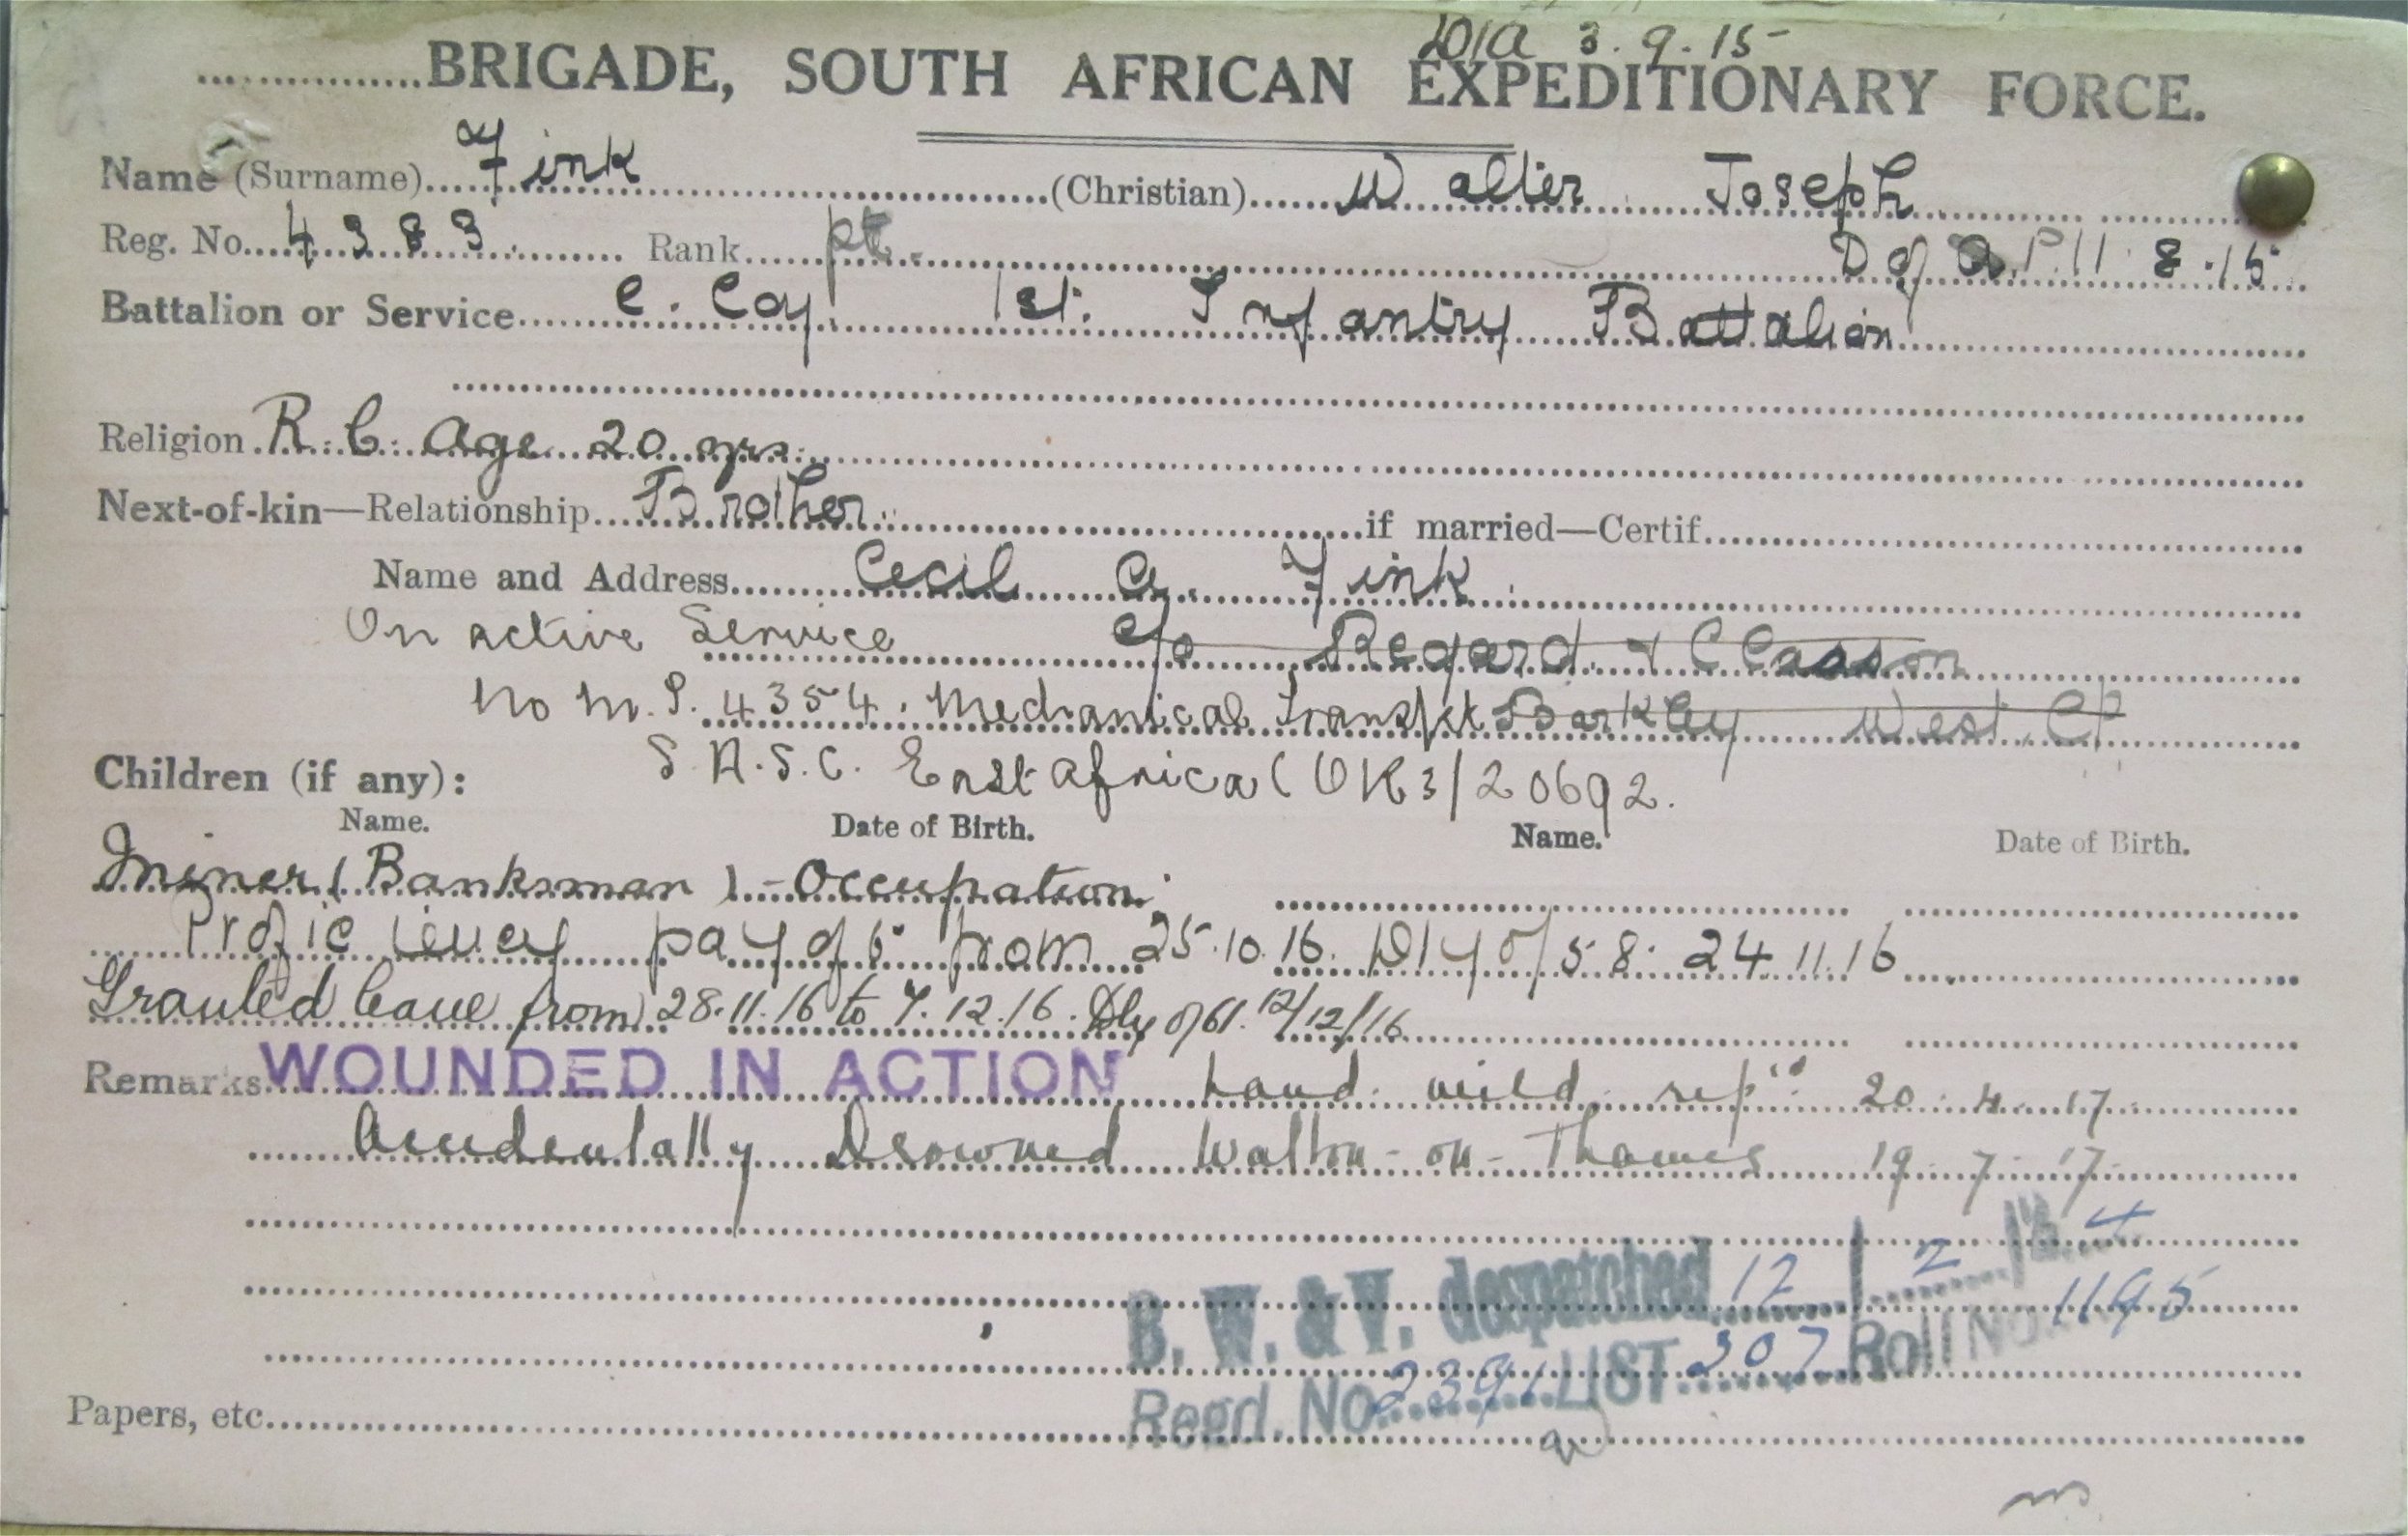 D/A 3.9.15
BRIGADE, SOUTH AFRICAN EXPEDITIONARY FORCE.
Name (Surname) Fink (Christian) Walter Joseph
Reg. No. 4383. Rank pt. D of A.P. 11.8.15
Battalion or Service C. Coy. 1st. Infantry Battalion
Religion R.C. Age 20 yrs.
Next-of-kin—Relationship Brother if married—Certif
Name and Address Cecil A. Fink.
On active Service c/o Regard & Classon
No M.S. 4354. Mechanical Transpt Barkley West CP
S.A.S.C. East Africa (OR3/20692.
Children (if any):
Name. Date of Birth. Name. Date of Birth.
Miner (Banksman) - Occupation.
Proficiency pay of 6 from 25.10.16. Dly o/58. 24.11.16
Granted leave from 28.11.16 to 7.12.16. Dly o/61. 12/12/16
Remarks WOUNDED IN ACTION hand. mild. rep'd 20.4.17
Accidentally Drowned Walton-on-Thames 19.7.17
B. W. & V. despatched 12 / 2 / 4
Regd. No. 2391 LIST 307 Roll No. 1195
Papers, etc.